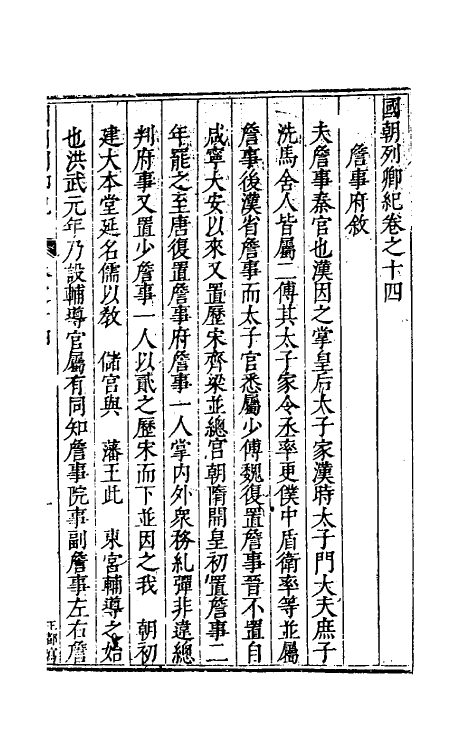 國朝列卿紀卷之十四
詹事府敘
夫詹事秦官也漢因之掌皇后太子家漢時太子門大夫庶子
洗馬舍人皆屬二傅其太子家令丞率更僕中盾衛率等並屬
詹事後漢省詹事而太子官悉屬少傅魏復置詹事晉不置自
咸寧大安以來又置歷宋齊梁並總官朝隋開皇初置詹事二
年罷之至唐復置詹事府詹事一人掌內外衆務糺彈非違總
判府事又置少詹事一人以貳之歷宋而下並因之我　朝初
建大本堂延名儒以敎　儲宮與　藩王此　東宮輔導之始
也洪武元年乃設輔導官屬有同知詹事院事副詹事左右詹